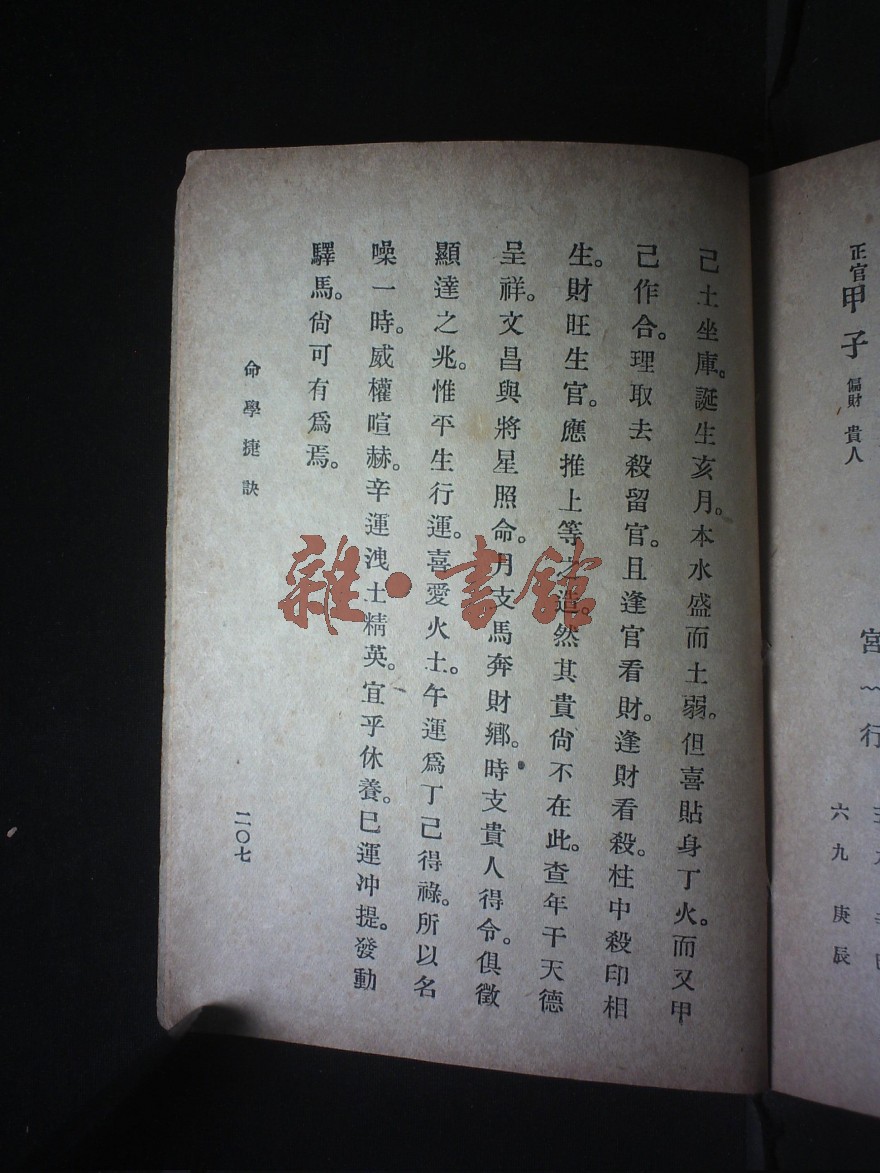 正官 甲子 偏財 貴人
宮
行
六九 庚辰
己土坐庫。誕生亥月。本水盛而土弱。但喜貼身丁火。而又甲
己作合。理取去殺留官。且逢官看財。逢財看殺。柱中殺印相
生。財旺生官。應推上等之造。然其貴尙不在此。查年干天德
呈祥。文昌與將星照命。月支馬奔財鄉。時支貴人得令。俱徵
顯達之兆。惟平生行運。喜愛火土。午運爲丁己得祿。所以名
噪一時。威權喧赫。辛運洩土精英。宜乎休養。巳運冲提。發動
驛馬。尙可有爲焉。
命學捷訣
二〇七
雜·書館